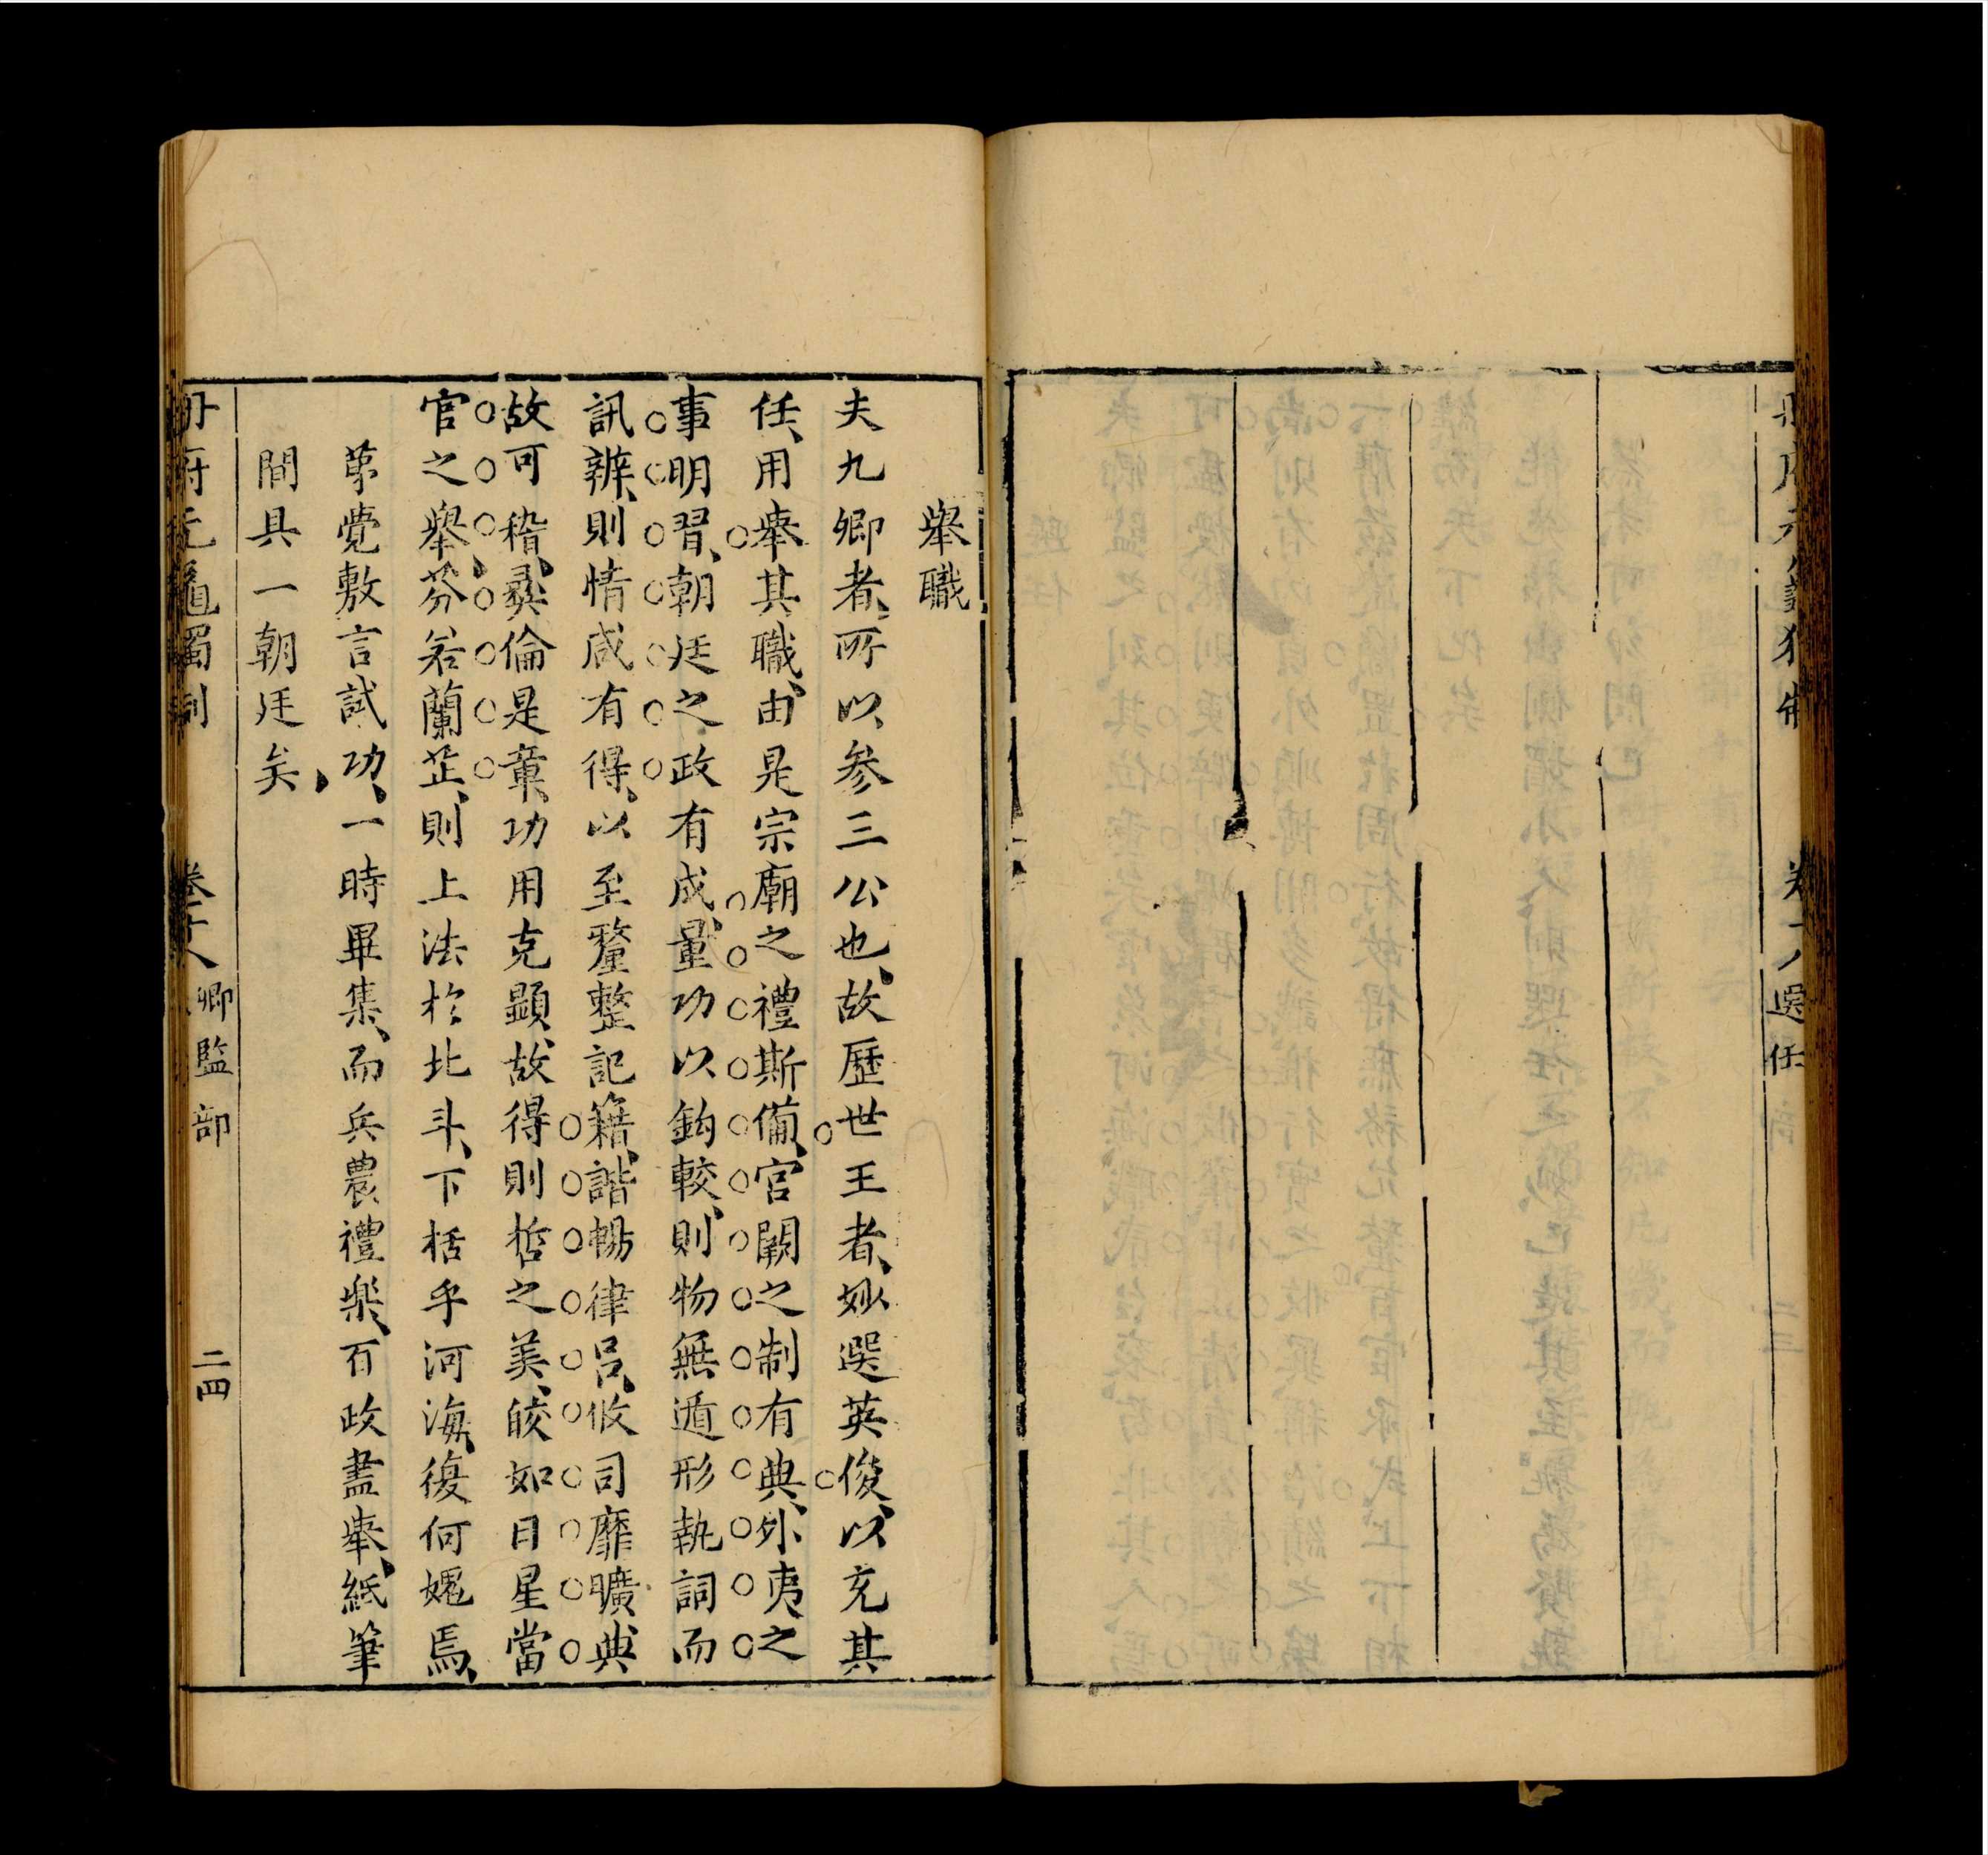 選任
舉職
夫九卿者、所以參三公也、故歷世王者、妙選英俊、以充其
任、用舉其職、由是宗廟之禮斯備、宮闕之制有典、外夷之
事明習、朝廷之政有成、量功以鈎較、則物無遁形執詞而
訊辨、則情咸有得、以至釐整記籍、諧暢律呂、攸司靡曠典
故可稽、彝倫是章、功用克顯、故得則哲之美、皎如日星當
官之舉、芬若蘭芷、則上法於北斗、下括乎河海、復何媿焉、
茅覺敷言試功、一時畢集、而兵農禮樂、百政盡舉、紙筆
間具一朝廷矣、
冊府元龜獨制
卷十八
卿監部
二四